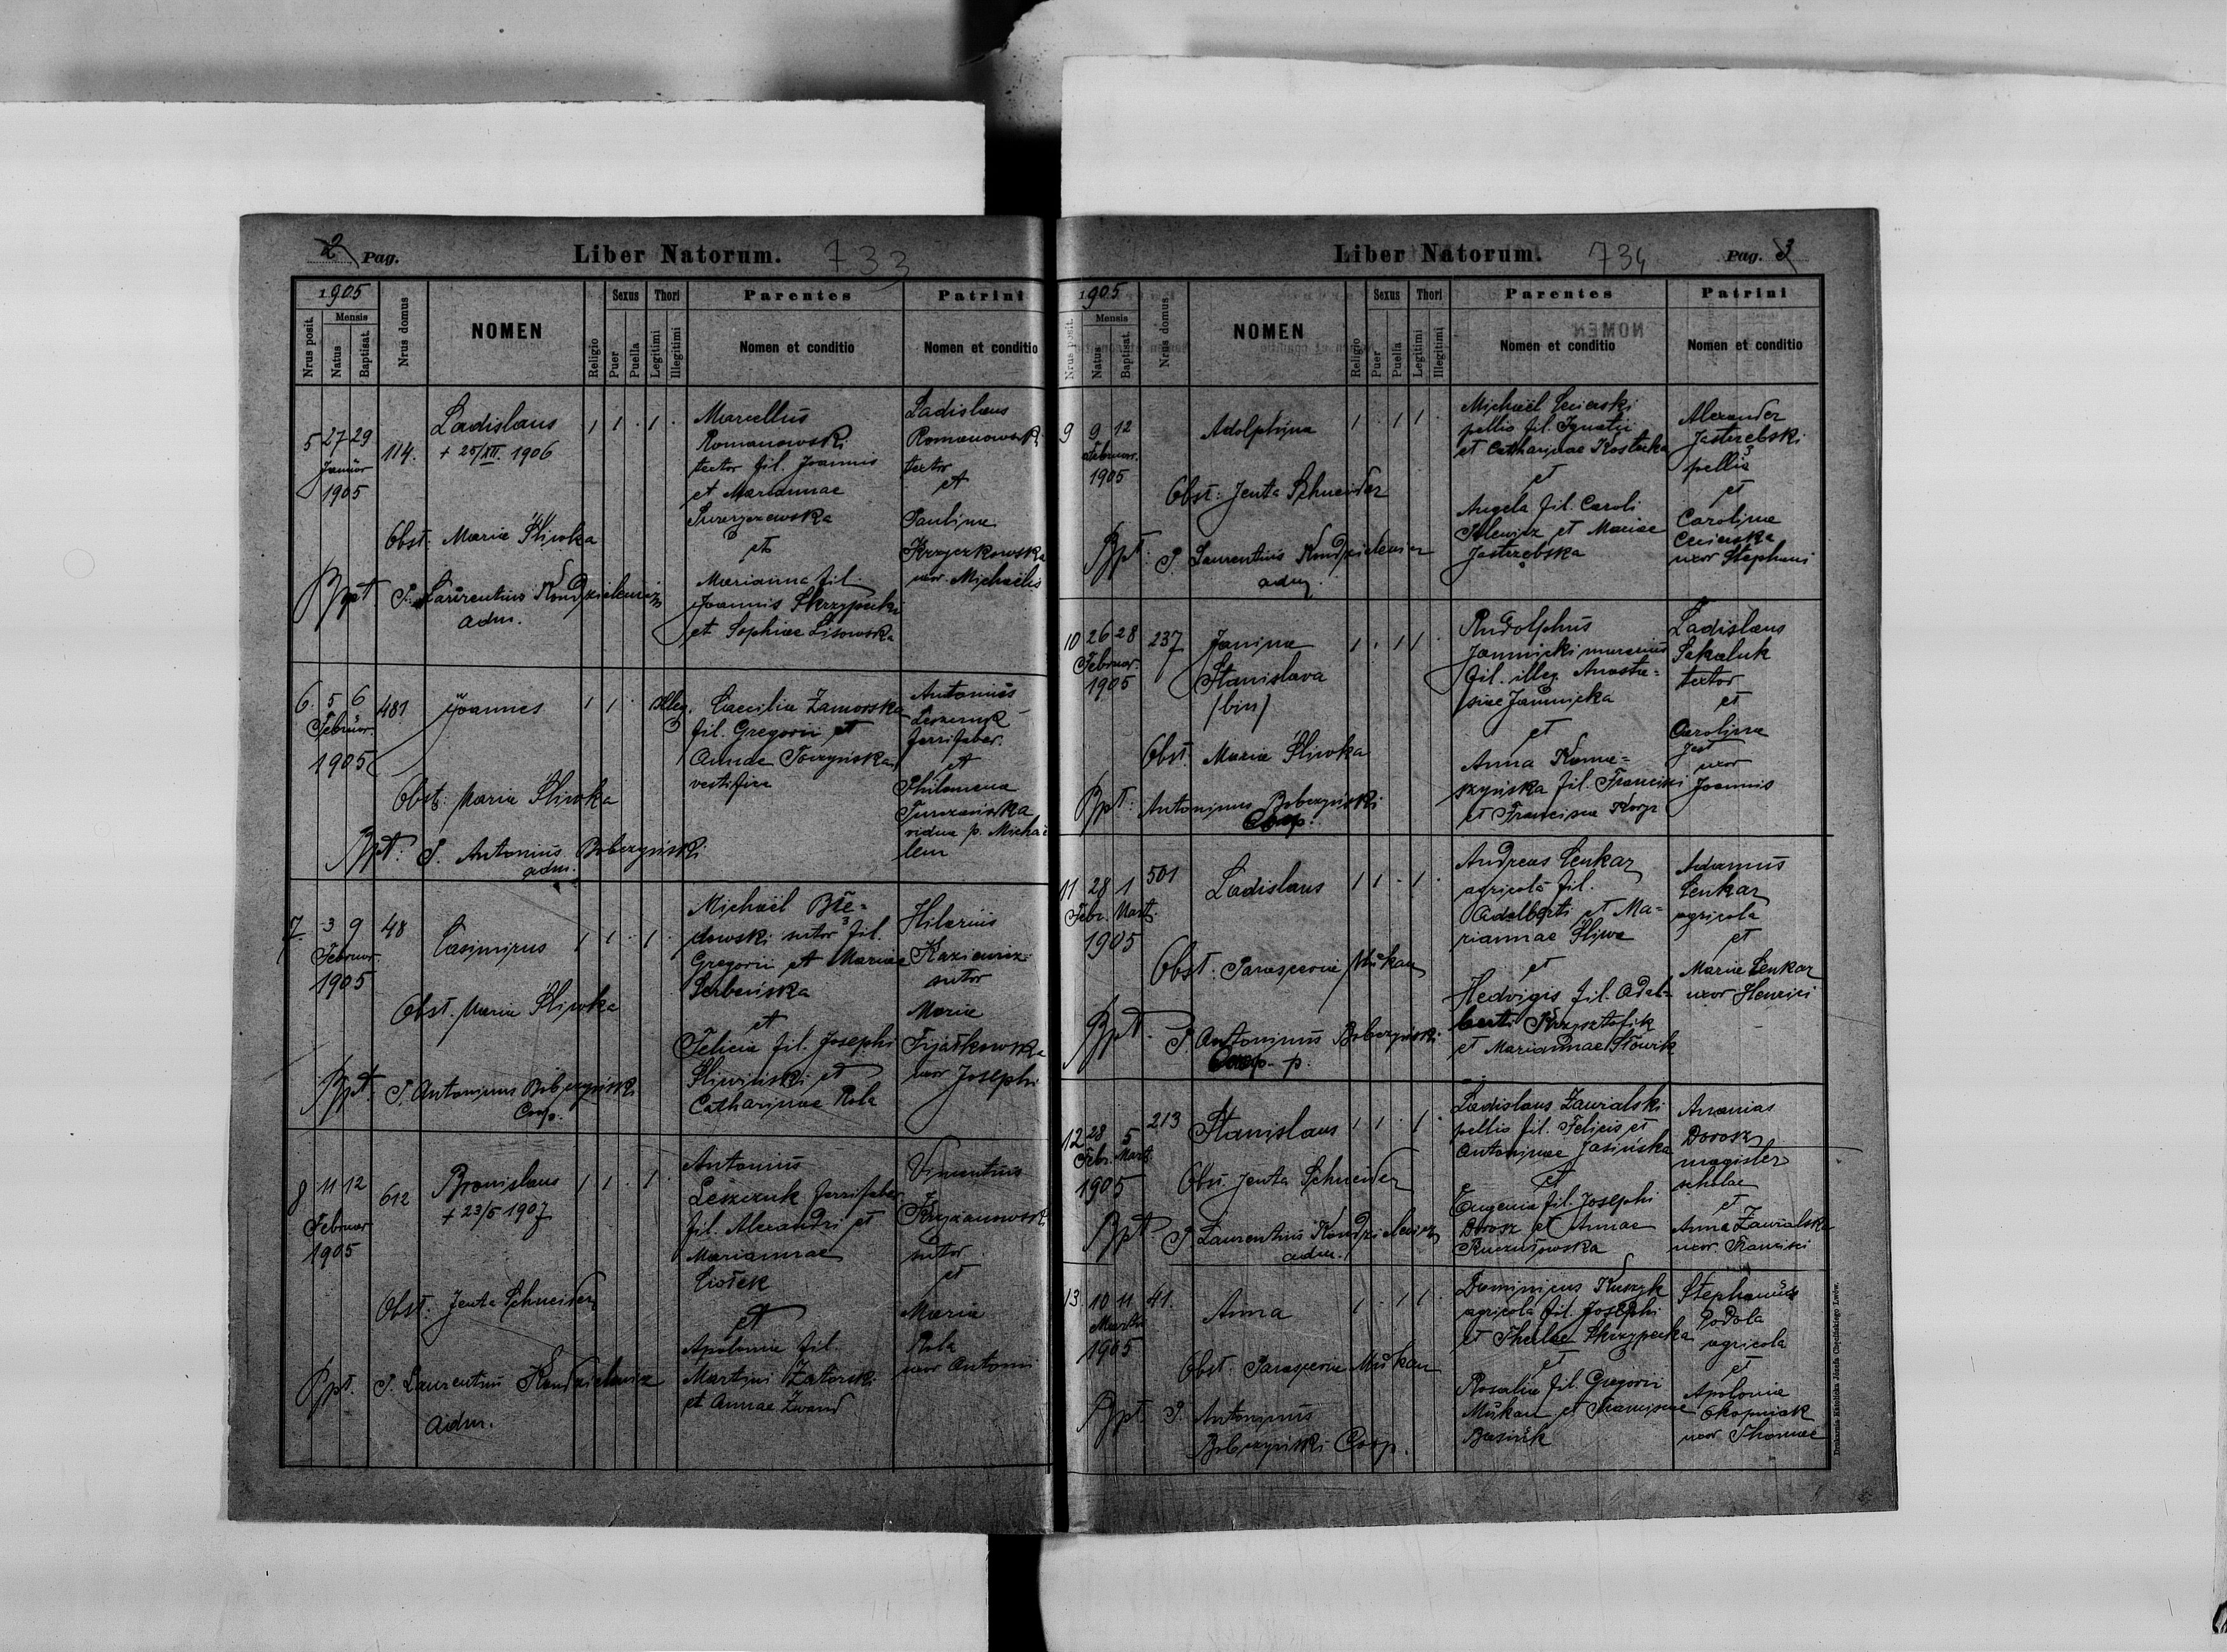 2 Pag.
Liber Natorum.
733
1905
Nrus posit.
Mensis
Natus
Baptisat.
Nrus domus
NOMEN
Religio
Sexus
Puer
Puella
Thori
Legitimi
Illegitimi
Parentes
Nomen et conditio
Patrini
Nomen et conditio
5 27 29
Januar
1905
114.
Ladislaus
+ 25/XII 1906
1 1 . 1 .
Marcellus
Romanowski
textor fil. Joannis
et Mariannae
et
Marianna fil.
Joannis Skrzypecki
et Sophiae Lisowska
Ladislaus
Romanowski
textor
et
Paulina
Krzyczkowska
uxor Michaëlis
Obst: Maria Śliwka
Bpt P. Laurentius Kondzielewicz
adm.
6. 5 6
Februar.
1905
481
Joannes
1 1 . Illeg.
Caecilia Zamorska
fil. Gregorii et
Annae Toczyńska
vestifica
Antonius
Leszczuk
ferrifaber.
et
Philomena
Turczańska
vidua p. Micha
lem
Obst: Maria Śliwka
Bpt: P. Antonius Bobczyński
adm.
7. 3 9
Februar.
1905
48
Casimirus
1 1 . 1 .
Michaël Bie=
dowski sutor fil.
Gregorii et Mariae
Serbeńska
et
Felicia fil. Josephi
Śliwiński et
Catharinae Rola
Hilarius
Kaziewicz
sutor
Maria
Fijałkowska
uxor Josephi
Obst. Maria Śliwka
Bpt. P. Antoninus Bobczyński
Coop.
8 11 12
Februar
1905
612
Bronislaus
+ 23/5 1907
1 1 . 1 .
Antonius
Leszczuk ferrifaber
fil. Alexandri et
Mariannae
Ciołek
et
Apolonia fil.
Martini Zatorski
et Annae Zward
Vincentius
Krzyżanowski
sutor
et
Maria
Rola
uxor Antonii
Obst: Jenta Schneider
Bpt. P. Laurentius Kondzielewicz
adm.
Liber Natorum.
734
Pag. 3
1905
Nrus posit.
Mensis
Natus
Baptisat.
Nrus domus
NOMEN
Religio
Sexus
Puer
Puella
Thori
Legitimi
Illegitimi
Parentes
Nomen et conditio
Patrini
Nomen et conditio
9 9 12
Februar.
1905
Adolphina
1 . 1 1 .
Michaël Cecierski
pellio fil. Ignatii
et Catharinae Kostecka
et
Angela fil. Caroli
Ilewicz et Mariae
Jastrzębska
Alexander
Jastrzębski
pellio
et
Carolina
Cecierska
uxor Stephani
Obst: Jenta Schneider
Bpt: P. Laurentius Kondzielewicz
adm.
10 26 28
Februar.
1905
237
Janina
Stanislava
/bin/
1 . 1 1 .
Rudolphus
Jamnicki murarius
fil. illeg. Anasta=
siae Jamnicka
et
Anna Kamie=
szyńska fil. Francisci
et Francisca Koryz
Ladislaus
Sakaluk
textor
et
Carolina
Jest
uxor
Joannis
Obst Maria Śliwka
Bpt: Antoninus Bobczyński
Coop.
11 28 1
Febr. Mart.
1905
501
Ladislaus
1 1 . 1 .
Andreas Lenkar
agricola fil.
Adalberti et Ma=
riannae Śliwa
et
Hedvigis fil. Adal=
berti Krzysztofik
et Mariannae Słowik
Adamus
Lenkar
agricola
et
Maria Lenkar
uxor Henrici
Obst: Parascevia Mukan
Bpt. P. Antoninus Bobczyński
Coop. p.
12 28 5
Febr. Mart
1905
213
Stanislaus
1 1 . 1 .
Ladislaus Zawralski
pellio fil. Felicis et
Antoninae Jasińska
et
Eugenia fil. Josephi
Dorosz et Annae
Ananias
Dorosz
magister
scholae
et
Anna Zawralska
uxor Francisci
Obst. Jenta Schneider
Bpt P. Laurentius Kondzielewicz
adm.
13. 10 11
Martii
1905
41.
Anna
1 . 1 1 .
Dominicus Kuszyk
agricola fil. Josephi
et Theclae Skrzypecka
et
Rosalia fil. Gregorii
Mukan et Franciscae
Basiuk
Stephanus
Podola
agricola
et
Apolonia
Okopniak
uxor Thomae
Obst: Parascevia Mukan
Bpt P. Antoninus
Bobczyński Coop.
Drukarnia Katolicka Józefa Chęcińskiego Lwów.